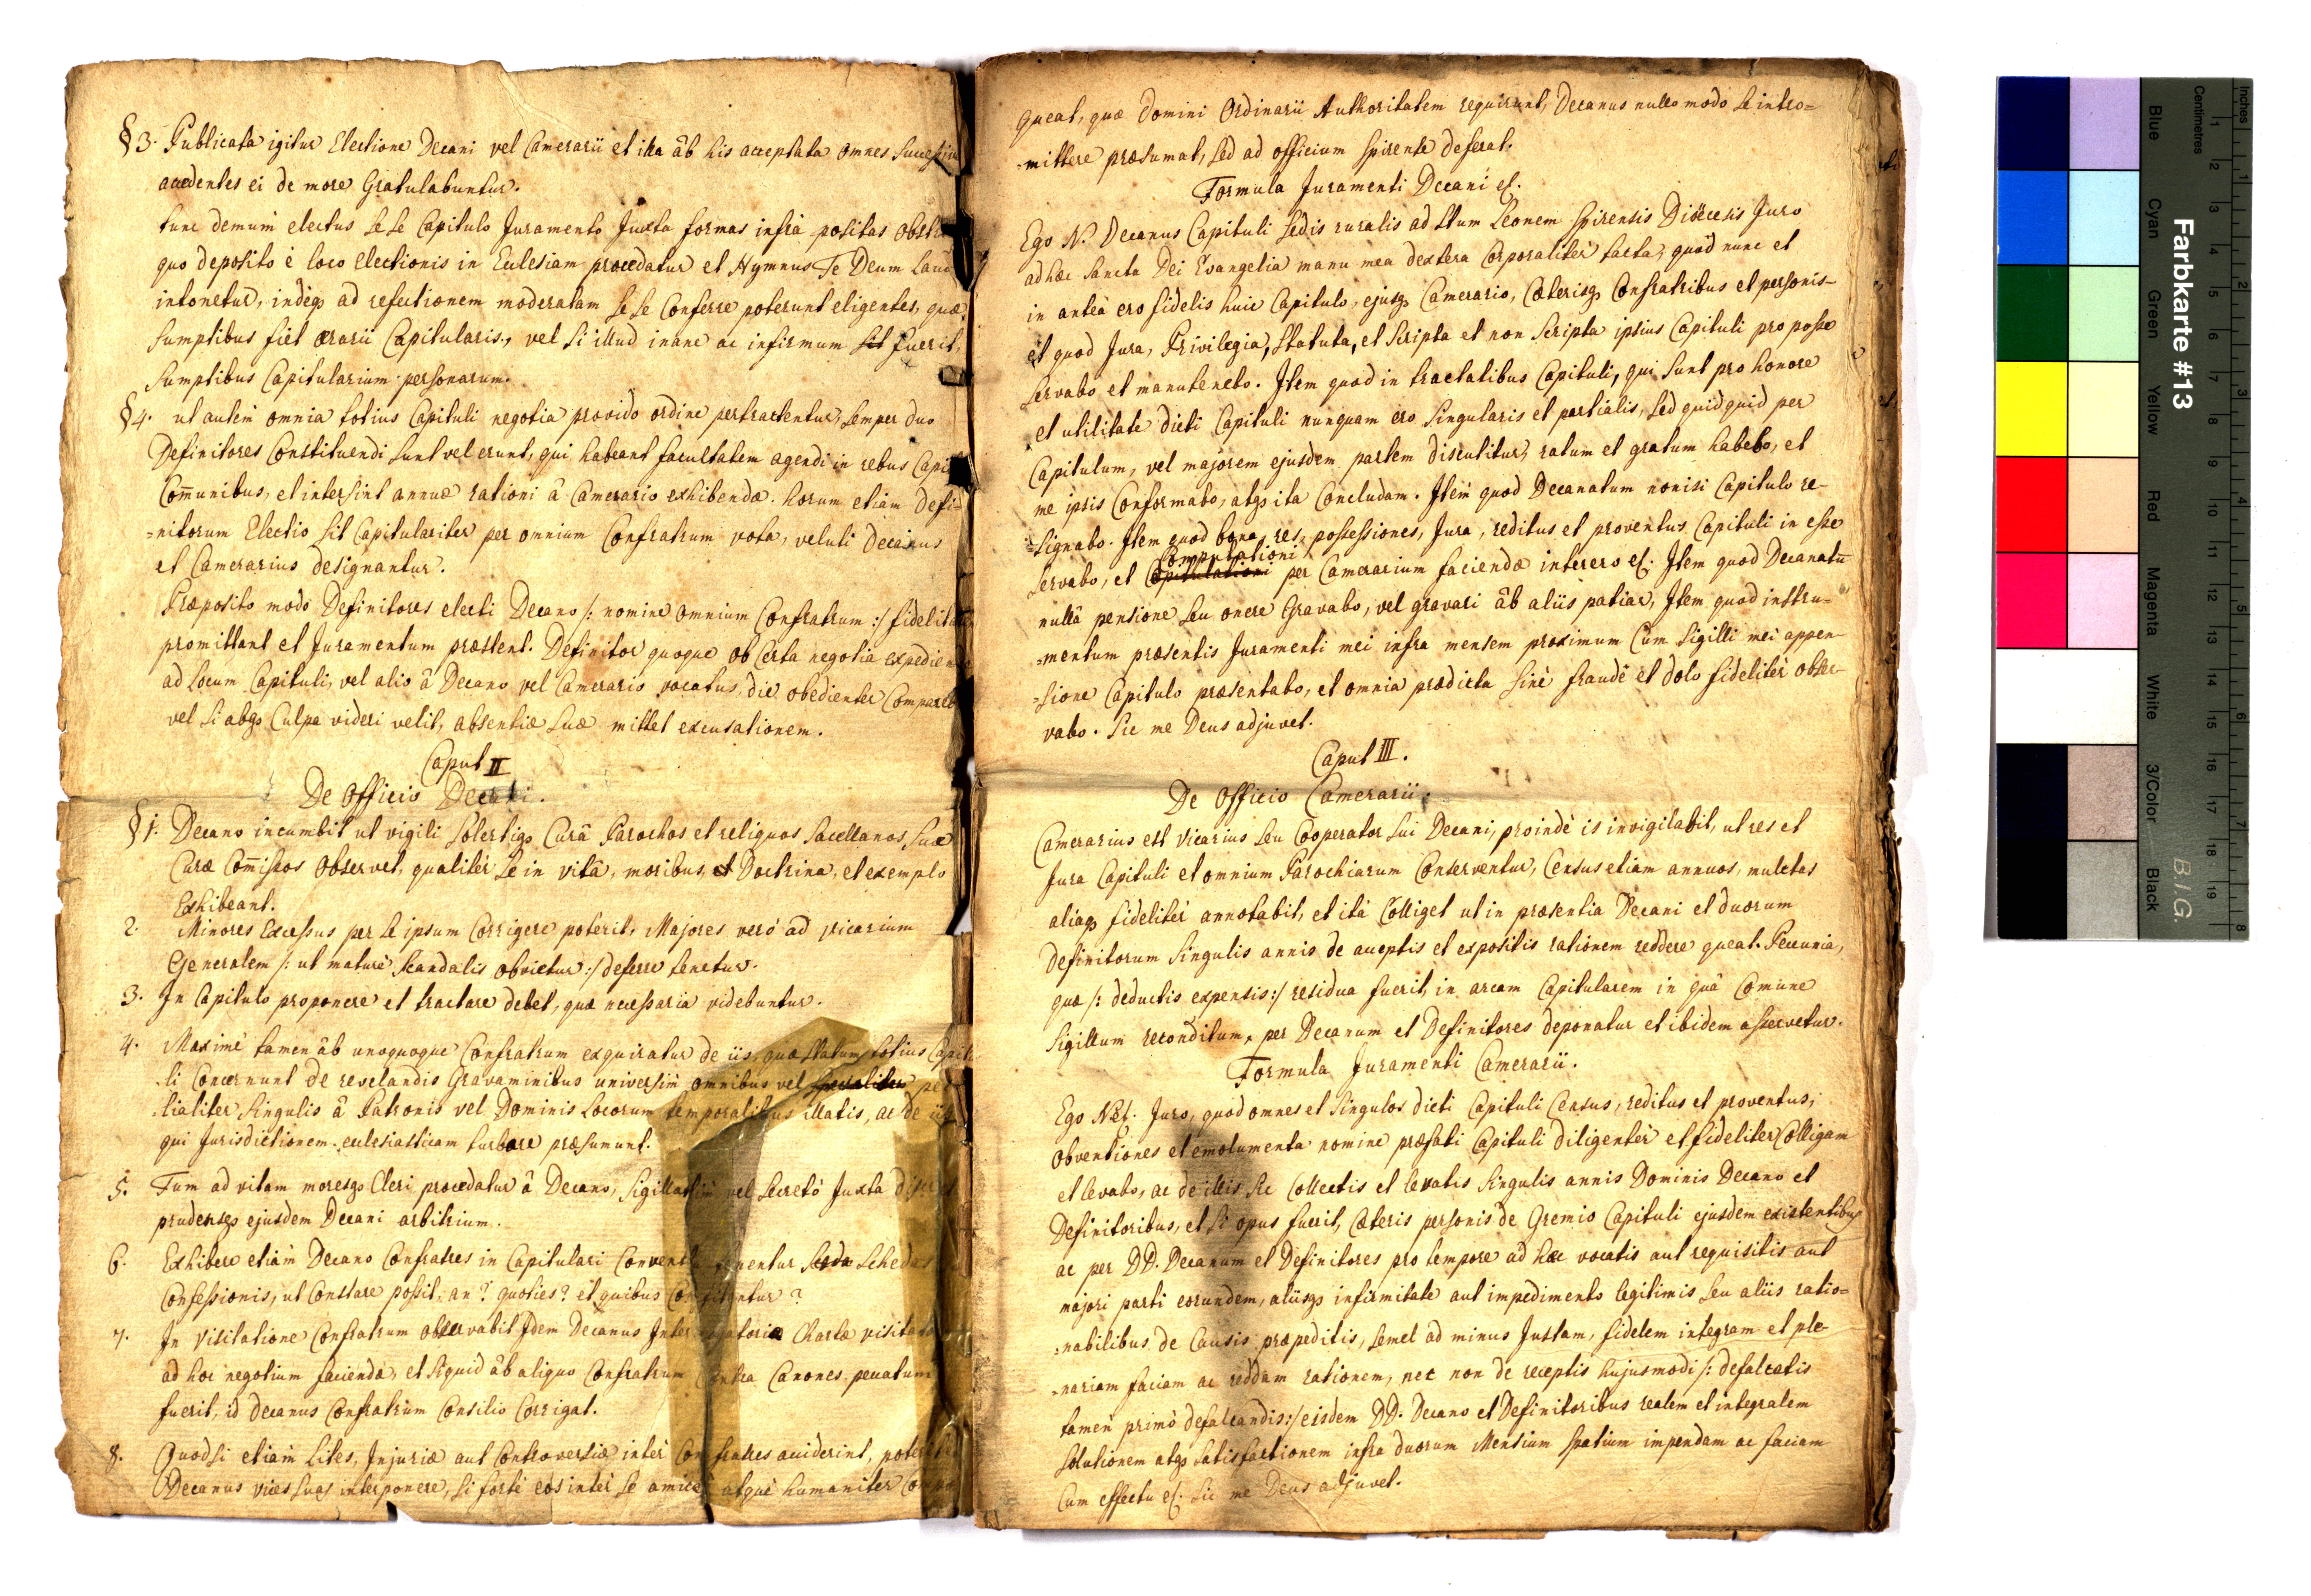 §3. Publicata igitur Electione Decani vel Camerarii et illa âb his acceptata omnes
accedentes ei de more Gratulabuntur.
tunc demum electus se se Capitulo Juramento Juxta formas infrà positas
quo deposito è loco electionis in Ecclesiam procedatur et Hymnus Te Deum
intonetur, indeq3 ad refectionem moderatam se se Conferre poterunt eligentes, quæ
sumptibus fiet ærarii Capitularis, vel si illud inane ac infirmum sit fuerit,
sumptibus Capitularium personarum.
§4. ut autem omnia totius Capituli negotia provido ordine pertractentur, semper duo
Definitores Constituendi sunt vel erunt, qui habeant facultatem agendi in rebus
Com̄unibus, et intersint annuæ rationi â Camerario exhibendæ. horum etiam Defi=
=nitorum Electio sit Capitulariter per omnium Confratrum vota, veluti Decanus
et Camerarius designantur.
Præposito modo Definitores electi Decano /: nomine omnium Confratrum :/
promittant et Juramentum præstent. Definitor quoque ob Certa negotia
ad Locum Capituli, vel alio â Decano vel Camerario vocatus, die obedienter
vel si absq3 Culpa videri velit, absentiæ suæ mittet excusationem.
Caput II
De Officio Decani.
§1. Decano incumbit ut vigili solertiq3 Curâ Parochos et reliquos Sacellanos, suæ
Curæ Com̄issos observet, qualiter se in vita, moribus, et Doctrina, et exemplo
Exhibeant.
2. Minores Excessus per se ipsum Corrigere poterit, Majores verò ad vicarium
Generalem /: ut mature scandalis obvietur :/ deferre tenetur.
3. In Capitulo proponere et tractare debet, quæ necessaria videbuntur.
4. Maximè tamen âb unoquoque Confratrum exquiratur de iis, quæ statum totius
li Concernunt de revelandis Gravaminibus universim omnibus vel specialiter
tialiter singulis â Patronis vel Dominis Locorum temporalibus illatis, ac de
qui Jurisdictionem ecclesiasticam turbare præsumunt.
5. Tum ad vitam moresq3 Cleri procedatur â Decano, sigillatim vel secretò Juxta
prudensq3 ejusdem Decani arbitrium.
6. Exhibere etiam Decano Confratres in Capitulari Conventu tenentur Scheda Schedas
Confessionis, ut Constare possit, an? quoties? et quibus Confitentur?
7. In Visitatione Confratrum observabit Idem Decanus Interrogatoria Chartæ
ad hoc negotium facienda, et siquid âb aliquo Confratrum Contra Canones peccatum
fuerit, id Decanus Confratrum Consilio Corrigat.
8. Quodsi etiam Lites, Injuriæ aut Controversiæ inter Confratres acciderint,
Decanus vices suas interponere, si forte eos inter se amicè atque humaniter
queat, quæ Domini Ordinarii Authoritatem requirunt, Decanus nullo modo se intro=
=mittere præsumat, sed ad officium spirense deferat.
Formula Juramenti Decani
Ego N. Decanus Capituli Sedis ruralis ad Stum Leonem Spirensis Diöecesis Juro
ad hæc Sancta Dei Evangelia manu mea dextera Corporaliter tacta, quod nunc et
in anteà ero fidelis huic Capitulo, ejusq3 Camerario, Cæterisq3 Confratribus et personis-
et quod Jura, Privilegia, Statuta, et Scripta et non Scripta ipsius Capituli pro posse
servabo et manutenebo. Item quod in tractatibus Capituli, qui sunt pro honore
et utilitate dicti Capituli nunquam ero singularis et partialis, sed quidquid per
Capitulum, vel majorem ejusdem partem discutitur, ratum et gratum habebo, et
me ipsis Conformabo, atq3 ita Concludam. Item quod Decanatum nonisi Capitulo re-
=signabo. Item quod bona, res, possessiones, Jura, reditus et proventus Capituli in esse
Computationi
servabo, et Capitulationi per Camerarium faciendæ interero Item quod Decanatū
nullâ pensione seu onere Gravabo, vel gravari âb aliis patiar, Item quod instru-
=mentum præsentis Juramenti mei infra mensem proximum Cum Sigilli mei appen-
=sione Capitulo præsentabo, et omnia prædicta sinè fraude et dolo fideliter obser-
vabo. Sic me Deus adjuvet.
Caput III.
De Officio Camerarii.
Camerarius est Vicarius seu Cooperator sui Decani, proindè is invigilabit, ut res et
Jura Capituli et omnium Parochiarum Conserventur, Census etiam annuos, mulctas
aliaq3 fideliter annotabit, et ita Colliget ut in præsentia Decani et duorum
Definitorum singulis annis de acceptis et expositis rationem reddere queat. Pecunia,
quæ /: deductis expensis :/ residua fuerit, in arcam Capitularem in quâ Comune
Sigillum reconditum, per Decanum et Definitores deponatur et ibidem asservetur.
Formula Juramenti Camerarii.
Ego Juro, quod omnes et singulos dicti Capituli Census, reditus et proventus,
obventiones et emolumenta nomine præfati Capituli diligenter et fideliter Colligam
et levabo, ac de illis sic Collectis et levatis singulis annis Dominis Decano et
Definitoribus, et si opus fuerit, Cæteris personis de Gremio Capituli ejusdem existentibus
ac per DD. Decanum et Definitores pro tempore ad hæc vocatis aut requisitis aut
majori parti eorundem, aliisq3 infirmitate aut impedimento legitimis seu aliis ratio=
=nabilibus de Causis præpeditis, semel ad minus Justam, fidelem integram et ple-
=nariam faciam ac reddam rationem, nec non de receptis hujusmodi /: defalcatis
tamen primò defalcandis :/ eisdem DD. Decano et Definitoribus realem et integralem
solutionem atq3 satisfactionem infra duorum Mensium spatium impendam ac faciam
Cum effectu Sic me Deus adjuvet.
Farbkarte #13
B.I.G.
Inches
Centimetres
Blue
Cyan
Green
Yellow
Red
Magenta
White
3/Color
Black
1 2 3 4 5 6 7 8 9 10 11 12 13 14 15 16 17 18 19
1 2 3 4 5 6 7 8